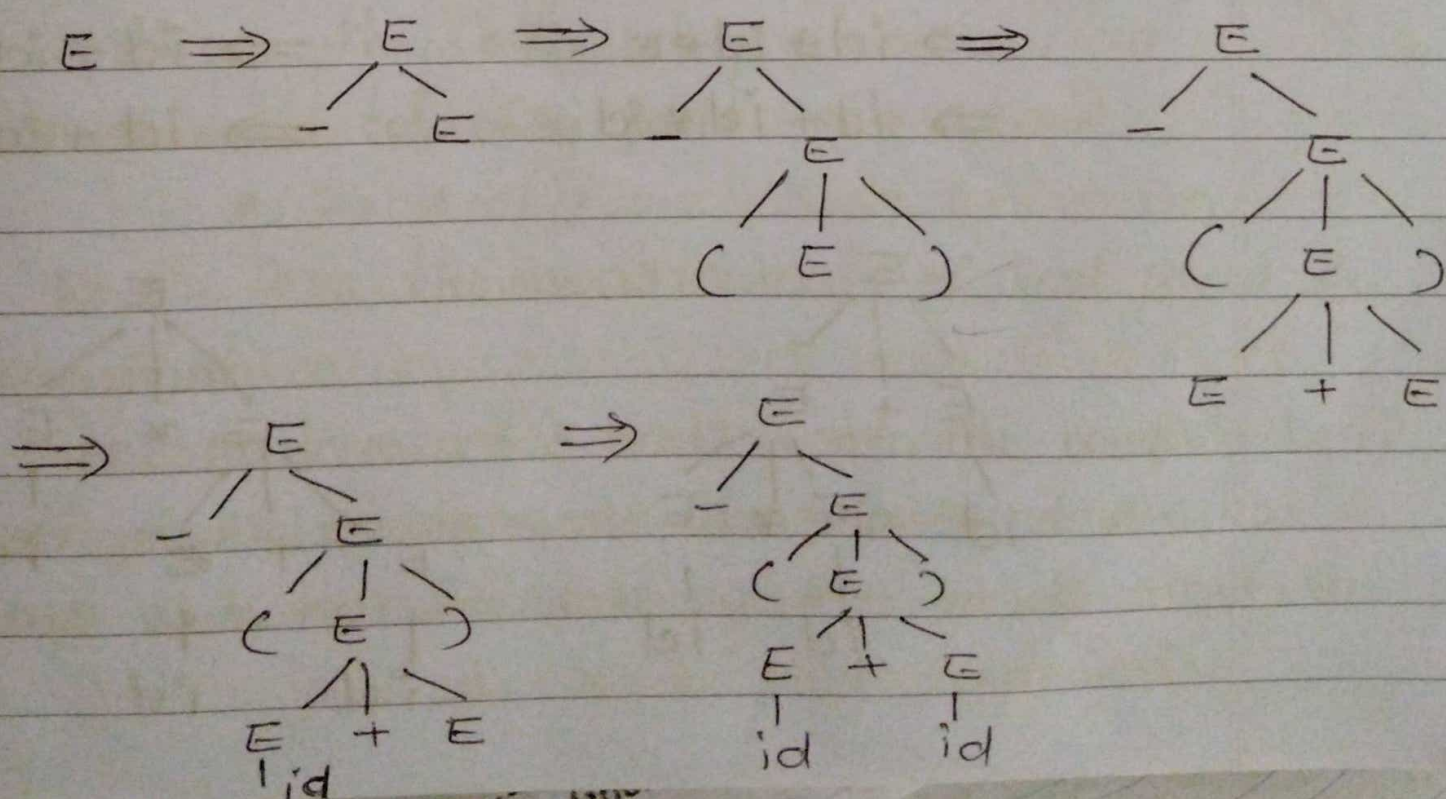 E ⇒ E ⇒ E ⇒ E
- E - -
E E
( E ) ( E )
E + E
⇒ E ⇒ E
- E - E
( E ) ( E )
E + E E + E
id id id